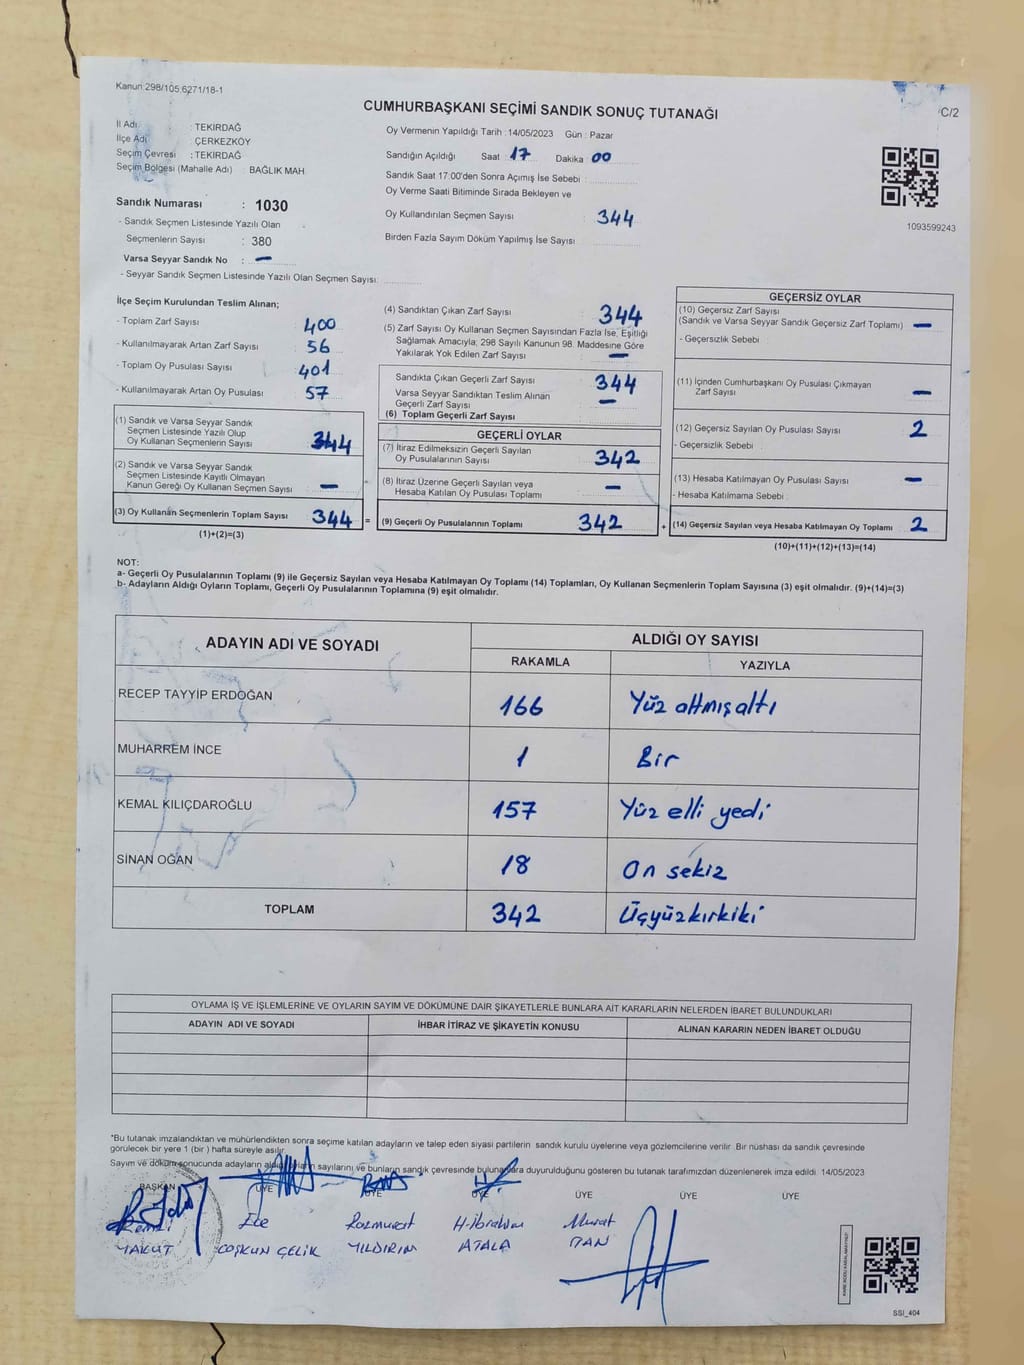 Kanun:298/105.6271/18-1
CUMHURBAŞKANI SEÇİMİ SANDIK SONUÇ TUTANAĞI
C/2
İl Adı : TEKİRDAĞ
İlçe Adı : ÇERKEZKÖY
Seçim Çevresi : TEKİRDAĞ
Seçim Bölgesi (Mahalle Adı) : BAĞLIK MAH
Oy Vermenin Yapıldığı Tarih : 14/05/2023 Gün : Pazar
Sandığın Açıldığı Saat : 17 Dakika : 00
Sandık Saat 17:00'den Sonra Açımış İse Sebebi :
Oy Verme Saati Bitiminde Sırada Bekleyen ve
Oy Kullandırılan Seçmen Sayısı : 344
Birden Fazla Sayım Döküm Yapılmış İse Sayısı :
1093599243
Sandık Numarası : 1030
- Sandık Seçmen Listesinde Yazılı Olan
Seçmenlerin Sayısı : 380
Varsa Seyyar Sandık No : —
- Seyyar Sandık Seçmen Listesinde Yazılı Olan Seçmen Sayısı:
İlçe Seçim Kurulundan Teslim Alınan;
- Toplam Zarf Sayısı : 400
- Kullanılmayarak Artan Zarf Sayısı : 56
- Toplam Oy Pusulası Sayısı : 401
- Kullanılmayarak Artan Oy Pusulası : 57
(1) Sandık ve Varsa Seyyar Sandık
Seçmen Listesinde Yazılı Olup
Oy Kullanan Seçmenlerin Sayısı : 344
(2) Sandık ve Varsa Seyyar Sandık
Seçmen Listesinde Kayıtlı Olmayan
Kanun Gereği Oy Kullanan Seçmen Sayısı : —
(3) Oy Kullanan Seçmenlerin Toplam Sayısı : 344 =
(1)+(2)=(3)
(4) Sandıktan Çıkan Zarf Sayısı : 344
(5) Zarf Sayısı Oy Kullanan Seçmen Sayısından Fazla İse, Eşitliği
Sağlamak Amacıyla; 298 Sayılı Kanunun 98. Maddesine Göre
Yakılarak Yok Edilen Zarf Sayısı : —
Sandıkta Çıkan Geçerli Zarf Sayısı : 344
Varsa Seyyar Sandıktan Teslim Alınan
Geçerli Zarf Sayısı : —
(6) Toplam Geçerli Zarf Sayısı :
GEÇERLİ OYLAR
(7) İtiraz Edilmeksizin Geçerli Sayılan
Oy Pusulalarının Sayısı : 342
(8) İtiraz Üzerine Geçerli Sayılan veya
Hesaba Katılan Oy Pusulası Toplamı : —
(9) Geçerli Oy Pusulalarının Toplamı : 342 +
GEÇERSİZ OYLAR
(10) Geçersiz Zarf Sayısı
(Sandık ve Varsa Seyyar Sandık Geçersiz Zarf Toplamı) : —
- Geçersizlik Sebebi :
(11) İçinden Cumhurbaşkanı Oy Pusulası Çıkmayan
Zarf Sayısı : —
(12) Geçersiz Sayılan Oy Pusulası Sayısı : 2
- Geçersizlik Sebebi :
(13) Hesaba Katılmayan Oy Pusulası Sayısı : —
- Hesaba Katılmama Sebebi :
(14) Geçersiz Sayılan veya Hesaba Katılmayan Oy Toplamı : 2
(10)+(11)+(12)+(13)=(14)
NOT:
a- Geçerli Oy Pusulalarının Toplamı (9) ile Geçersiz Sayılan veya Hesaba Katılmayan Oy Toplamı (14) Toplamları, Oy Kullanan Seçmenlerin Toplam Sayısına (3) eşit olmalıdır. (9)+(14)=(3)
b- Adayların Aldığı Oyların Toplamı, Geçerli Oy Pusulalarının Toplamına (9) eşit olmalıdır.
ADAYIN ADI VE SOYADI
ALDIĞI OY SAYISI
RAKAMLA YAZIYLA
RECEP TAYYİP ERDOĞAN 166 Yüz altmış altı
MUHARREM İNCE 1 Bir
KEMAL KILIÇDAROĞLU 157 Yüz elli yedi
SİNAN OĞAN 18 On sekiz
TOPLAM 342 Üçyüzkırkiki
OYLAMA İŞ VE İŞLEMLERİNE VE OYLARIN SAYIM VE DÖKÜMÜNE DAİR ŞİKAYETLERLE BUNLARA AİT KARARLARIN NELERDEN İBARET BULUNDUKLARI
ADAYIN ADI VE SOYADI İHBAR İTİRAZ VE ŞİKAYETİN KONUSU ALINAN KARARIN NEDEN İBARET OLDUĞU
*Bu tutanak imzalandıktan ve mühürlendikten sonra seçime katılan adayların ve talep eden siyasi partilerin sandık kurulu üyelerine veya gözlemcilerine verilir. Bir nüshası da sandık çevresinde
görülecek bir yere 1 (bir) hafta süreyle asılır.
Sayım ve döküm sonucunda adayların aldığı oyların sayılarını ve bunların sandık çevresinde bulunanlara duyurulduğunu gösteren bu tutanak tarafımızdan düzenlenerek imza edildi. 14/05/2023
BAŞKAN ÜYE ÜYE ÜYE ÜYE ÜYE ÜYE
Remzi Ece Razmurat H.İbrahim Murat
YAKUT COŞKUN ÇELİK YILDIRIM ATALA
SSI_404